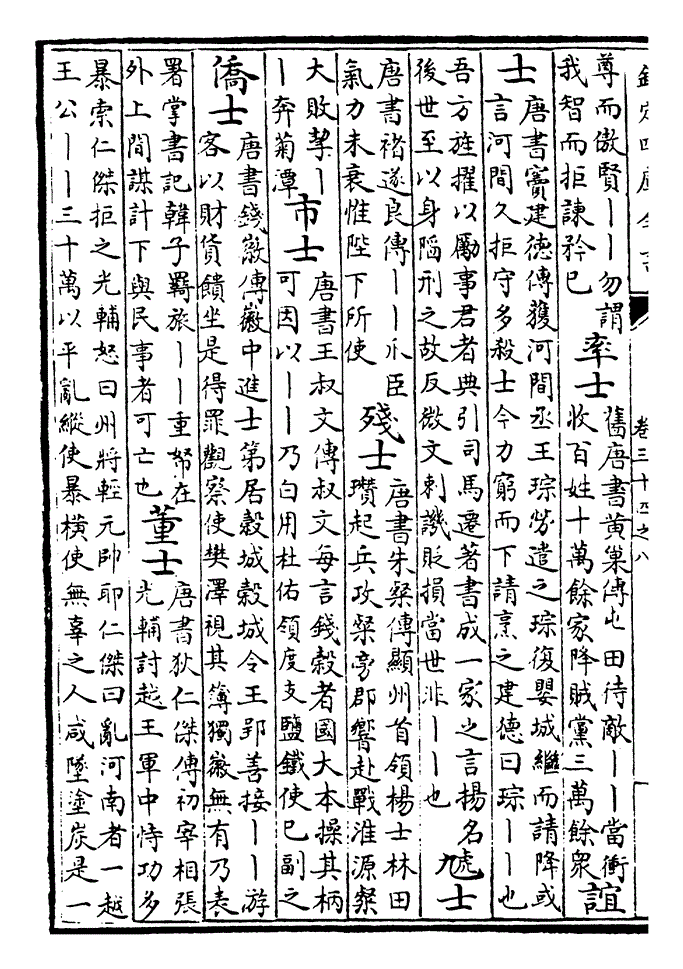 欽定四庫全書
卷三十四之八
尊而傲賢丨丨勿謂
我智而拒諫矜已
率士
舊唐書黄巢傳屯田待敵丨丨當衝
收百姓十萬餘家降賊黨三萬餘衆
誼
士
唐書竇建德傳獲河間丞王琮勞遣之琮復嬰城繼而請降或
言河間久拒守多殺士今力窮而下請烹之建德曰琮丨丨也
吾方旌擢以勵事君者典引司馬遷著書成一家之言揚名
後世至以身陷刑之故反微文刺譏貶損當世非丨丨也
虓士
唐書褚遂良傳丨丨爪臣
氣力未衰惟陛下所使
殘士
唐書朱粲傳顯州首領楊士林田
瓚起兵攻粲旁郡響赴戰淮源粲
大敗挈丨
丨奔菊潭
市士
唐書王叔文傳叔文每言錢穀者國大本操其柄
可因以丨丨乃白用杜佑領度支鹽鐵使已副之
僑士
唐書錢徽傳徽中進士第居穀城穀城令王郢善接丨丨游
客以財貨饋坐是得罪觀察使樊澤視其簿獨徽無有乃表
署掌書記韓子羇旅丨丨重帑在
外上間謀計下與民事者可亡也
董士
唐書狄仁傑傳初宰相張
光輔討越王軍中恃功多
暴索仁傑拒之光輔怒曰州將輕元帥耶仁傑曰亂河南者一越
王公丨丨三十萬以平亂縱使暴横使無辜之人咸墜塗炭是一